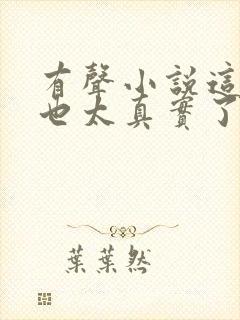 有聲小說這
也太真實了
葉葉然